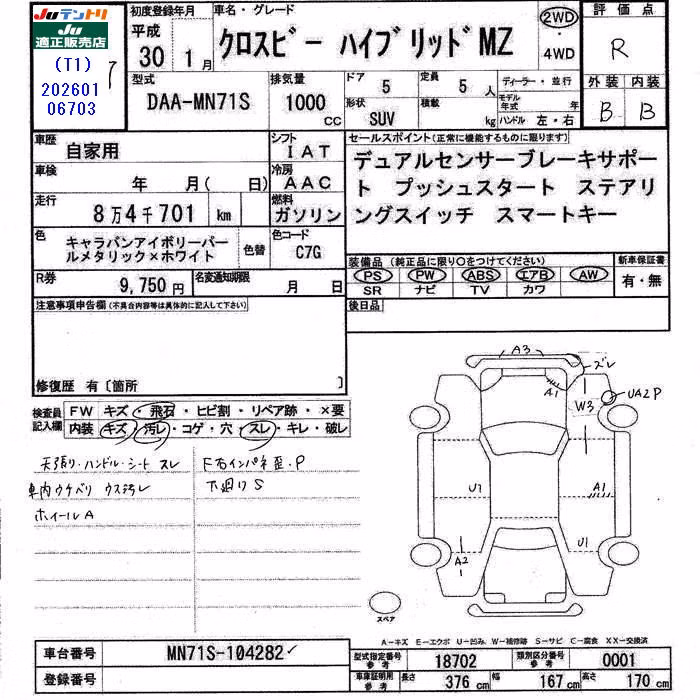 JUテントリ
JU
適正販売店
(T1)
202601
06703
7
初度登録年月
平成
30 1月
車名・グレード
クロスビー ハイブリッドMZ
2WD
・
4WD
評価点
R
型式
DAA-MN71S
排気量
1000
CC
ドア
5
形状
SUV
定員
5 人
積載
kg
ディーラー・並行
モデル年式 年
ハンドル 左・右
外装 内装
B B
車歴
自家用
シフト
IAT
車検
年 月( 日)
冷房
AAC
走行
8万4千701 km
燃料
ガソリン
色
キャラバンアイボリーパー
ルメタリック×ホワイト
色替
色コード
C7G
R券
9,750円
名変通知期限
月 日
セールスポイント(正常に機能するものに限ります)
デュアルセンサーブレーキサポー
ト プッシュスタート ステアリ
ングスイッチ スマートキー
装備品(純正品に限り○をつけてください)
PS PW ABS エアB AW
SR ナビ TV カワ
新車保証書
有・無
後日品
注意事項申告欄(不具合内容等は具体的に記入して下さい)
修復歴 有〔箇所 〕
検査員
記入欄
FW キズ・飛石・ヒビ割・リペア跡・×要
内装 キズ・汚レ・コゲ・穴・スレ・キレ・破レ
天張り・ハンドル・シート スレ
車内ウチバリ ウス汚レ
ホイールA
F右インパネ歪・P
下廻りS
A3
ズレ
A1
W3
UA2P
U1
A1
A2
U1
スペア
A-キズ E-エクボ U-凹み W-補修跡 S-サビ C-腐食 XX-交換済
車台番号
MN71S-104282
登録番号
型式指定番号
参考
18702
類別区分番号
参考
0001
車庫証明用
参考
長さ 376 cm 幅 167 cm 高さ 170 cm